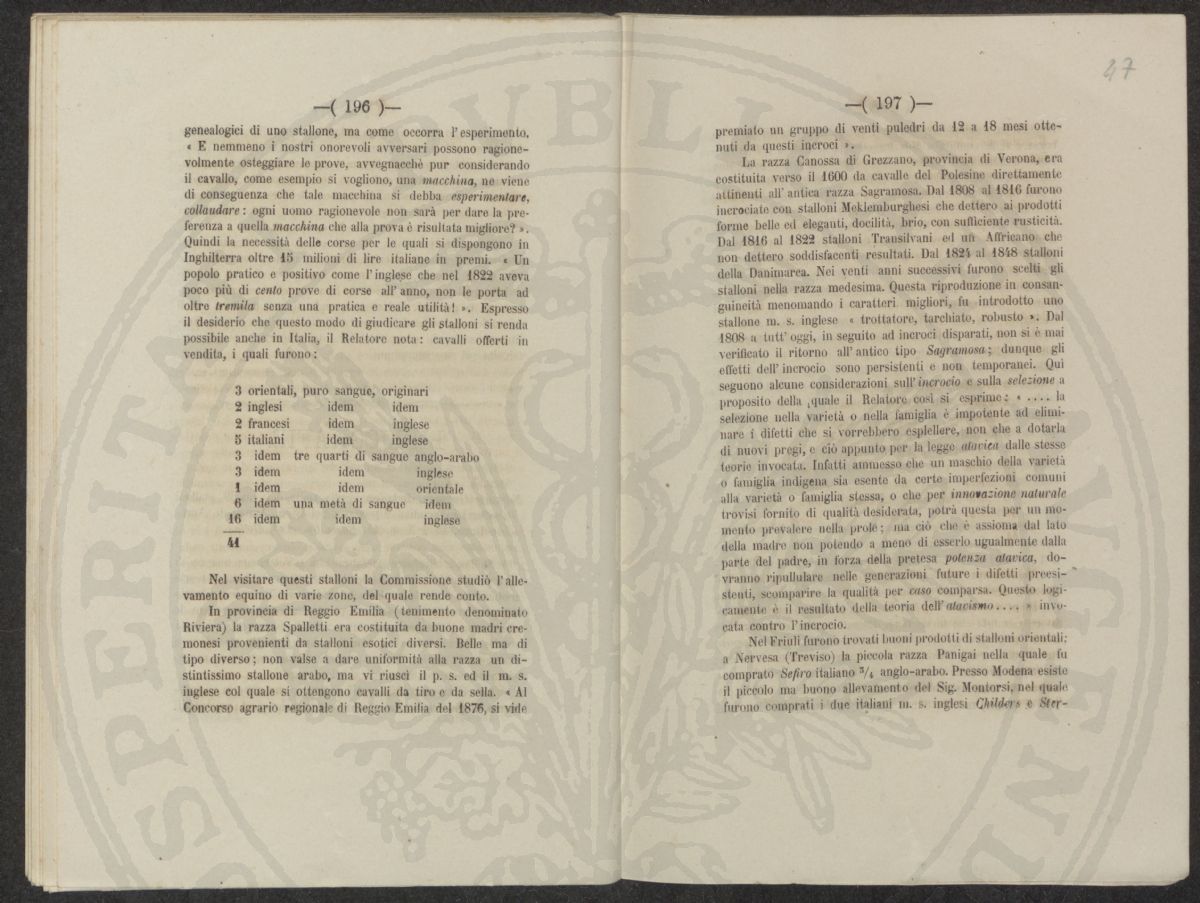 —( 196 )—
genealogici di uno stallone, ma come occorra l'esperimento.
« E nemmeno i nostri onorevoli avversari possono ragione-
volmente osteggiare le prove, avvegnacchè pur considerando
il cavallo, come esempio si vogliono, una macchina, ne viene
di conseguenza che tale macchina si debba esperimentare,
collaudare : ogni uomo ragionevole non sarà per dare la pre-
ferenza a quella macchina che alla prova è risultata migliore? ».
Quindi la necessità delle corse per le quali si dispongono in
Inghilterra oltre 15 milioni di lire italiane in premi. « Un
popolo pratico e positivo come l'inglese che nel 1822 aveva
poco più di cento prove di corse all'anno, non le porta ad
oltre tremila senza una pratica e reale utilità! ». Espresso
il desiderio che questo modo di giudicare gli stalloni si renda
possibile anche in Italia, il Relatore nota : cavalli offerti in
vendita, i quali furono :
3 orientali, puro sangue, originari
2 inglesi idem idem
2 francesi idem inglese
5 italiani idem inglese
3 idem tre quarti di sangue anglo-arabo
3 idem idem inglese
1 idem idem orientale
6 idem una metà di sangue idem
16 idem idem inglese
41
Nel visitare questi stalloni la Commissione studiò l'alle-
vamento equino di varie zone, del quale rende conto.
In provincia di Reggio Emilia (tenimento denominato
Riviera) la razza Spalletti era costituita da buone madri cre-
monesi provenienti da stalloni esotici diversi. Belle ma di
tipo diverso ; non valse a dare uniformità alla razza un di-
stintissimo stallone arabo, ma vi riuscì il p. s. ed il m. s.
inglese col quale si ottengono cavalli da tiro e da sella. « Al
Concorso agrario regionale di Reggio Emilia del 1876, si vide
47
—( 197 )—
premiato un gruppo di venti puledri da 12 a 18 mesi otte-
nuti da questi incroci ».
La razza Canossa di Grezzano, provincia di Verona, era
costituita verso il 1600 da cavalle del Polesine direttamente
attinenti all' antica razza Sagramosa. Dal 1808 al 1816 furono
incrociate con stalloni Meklemburghesi che dettero ai prodotti
forme belle ed eleganti, docilità, brio, con sufficiente rusticità.
Dal 1816 al 1822 stalloni Transilvani ed un Affricano che
non dettero soddisfacenti resultati. Dal 1824 al 1848 stalloni
della Danimarca. Nei venti anni successivi furono scelti gli
stalloni nella razza medesima. Questa riproduzione in consan-
guineità menomando i caratteri migliori, fu introdotto uno
stallone m. s. inglese « trottatore, tarchiato, robusto ». Dal
1808 a tutt' oggi, in seguito ad incroci disparati, non si è mai
verificato il ritorno all' antico tipo Sagramosa ; dunque gli
effetti dell' incrocio sono persistenti e non temporanei. Qui
seguono alcune considerazioni sull' incrocio e sulla selezione a
proposito della quale il Relatore così si esprime : « .... la
selezione nella varietà o nella famiglia è impotente ad elimi-
nare i difetti che si vorrebbero espellere, non che a dotarla
di nuovi pregi, e ciò appunto per la legge atavica dalle stesse
teorie invocata. Infatti ammesso che un maschio della varietà
o famiglia indigena sia esente da certe imperfezioni comuni
alla varietà o famiglia stessa, o che per innovazione naturale
trovisi fornito di qualità desiderata, potrà questa per un mo-
mento prevalere nella prole ; ma ciò che è assioma dal lato
della madre non potendo a meno di esserlo ugualmente dalla
parte del padre, in forza della pretesa potenza atavica, do-
vranno ripullulare nelle generazioni future i difetti preesi-
stenti, scomparire la qualità per caso comparsa. Questo logi-
camente è il resultato della teoria dell' atacismo.... » invo-
cata contro l'incrocio.
Nel Friuli furono trovati buoni prodotti di stalloni orientali;
a Nervesa (Treviso) la piccola razza Panigai nella quale fu
comprato Sefiro italiano 3/4 anglo-arabo. Presso Modena esiste
il piccolo ma buono allevamento del Sig. Montorsi, nel quale
furono comprati i due italiani m. s. inglesi Childers e Ster-